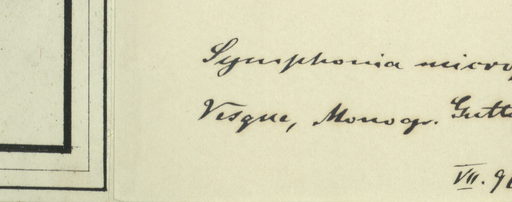 Symphonia micro
Vesque, Monogr. Gutt
VII. 9